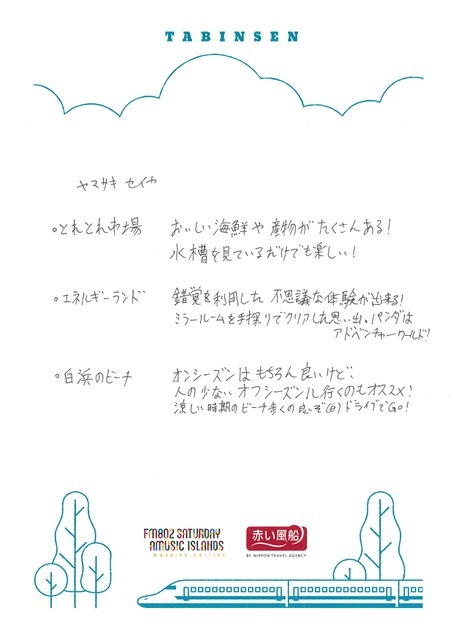 TABINSEN
ヤマサキ セイヤ
。とれとれ市場 おいしい海鮮や産物がたくさんある!
水槽を見ているだけでも楽しい!
。エネルギーランド 錯覚を利用した不思議な体験が出来る!
ミラールームを手探りでクリアした思い出。パンダは
アドベンチャーワールド!
。白浜のビーチ オンシーズンはもちろん良いけど、
人の少ないオフシーズンに行くのもオススメ!
涼しい時期のビーチ歩くの良いぞ ドライブでGO!
FM802 SATURDAY
AMUSIC ISLANDS
MORNING EDITION
赤い風船
BY NIPPON TRAVEL AGENCY